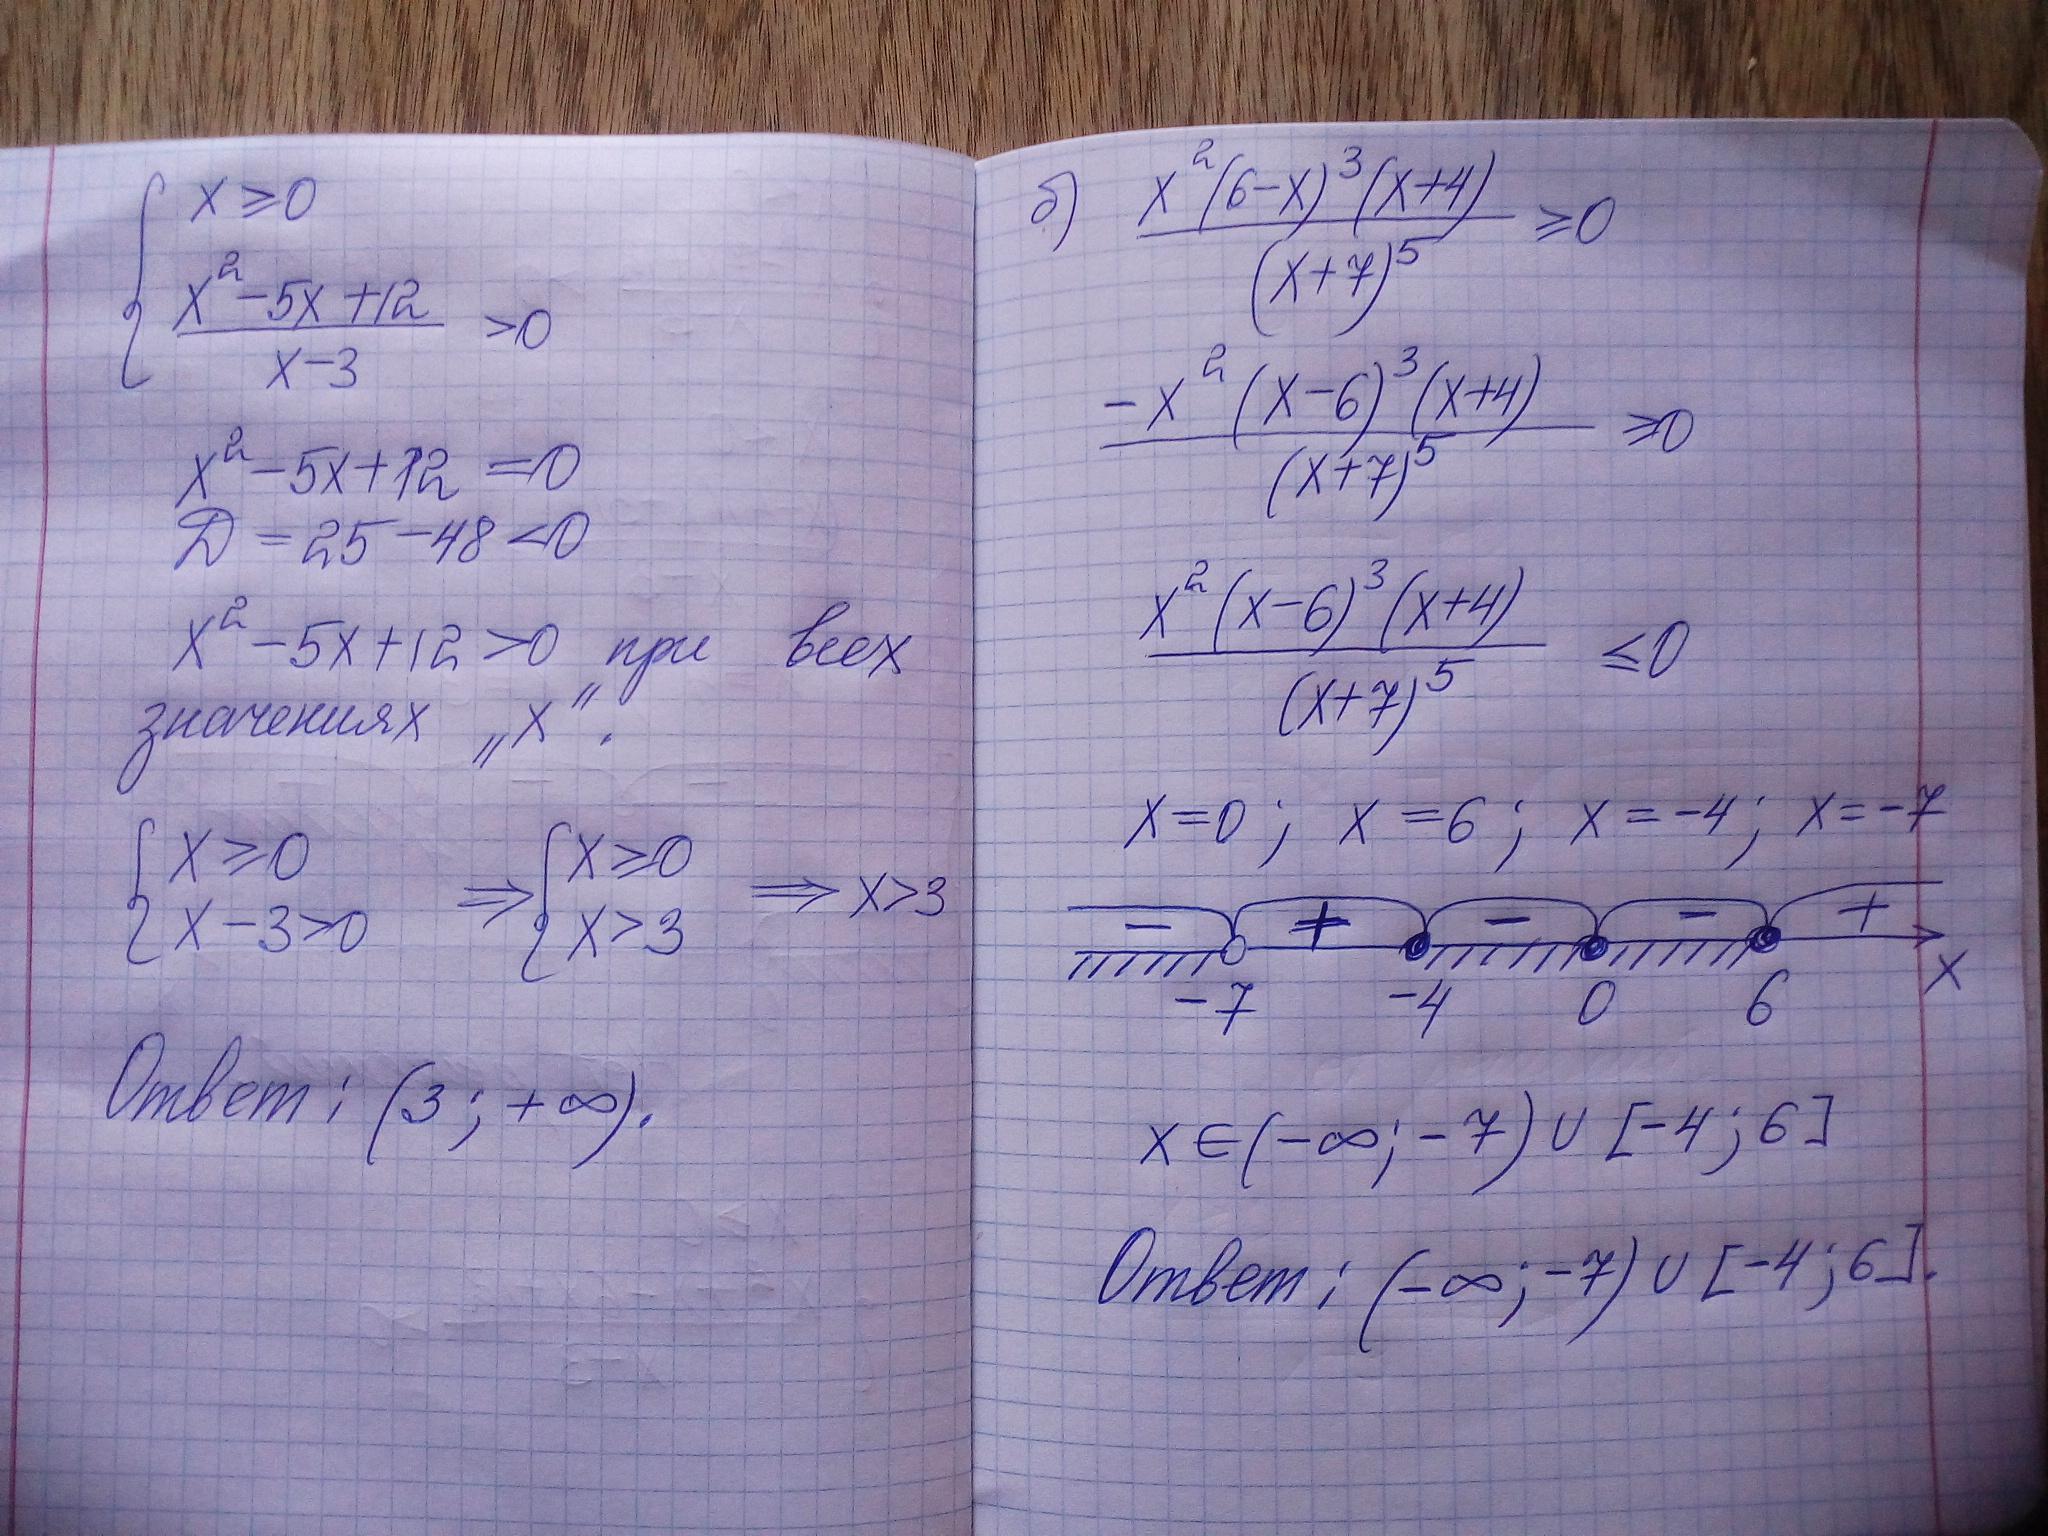 { x ≥ 0
x² - 5x + 12 / x - 3 > 0
x² - 5x + 12 = 0
D = 25 - 48 < 0
x² - 5x + 12 > 0 при всех
значениях „x".
{ x ≥ 0 ⇒ { x ≥ 0 ⇒ x > 3
x - 3 > 0 x > 3
Ответ: (3; +∞).
б) x²(6-x)³(x+4) / (x+7)⁵ ≥ 0
-x²(x-6)³(x+4) / (x+7)⁵ ≥ 0
x²(x-6)³(x+4) / (x+7)⁵ ≤ 0
x = 0; x = 6; x = -4; x = -7
- + - - +
-7 -4 0 6 x
x ∈ (-∞; -7) ∪ [-4; 6]
Ответ: (-∞; -7) ∪ [-4; 6].